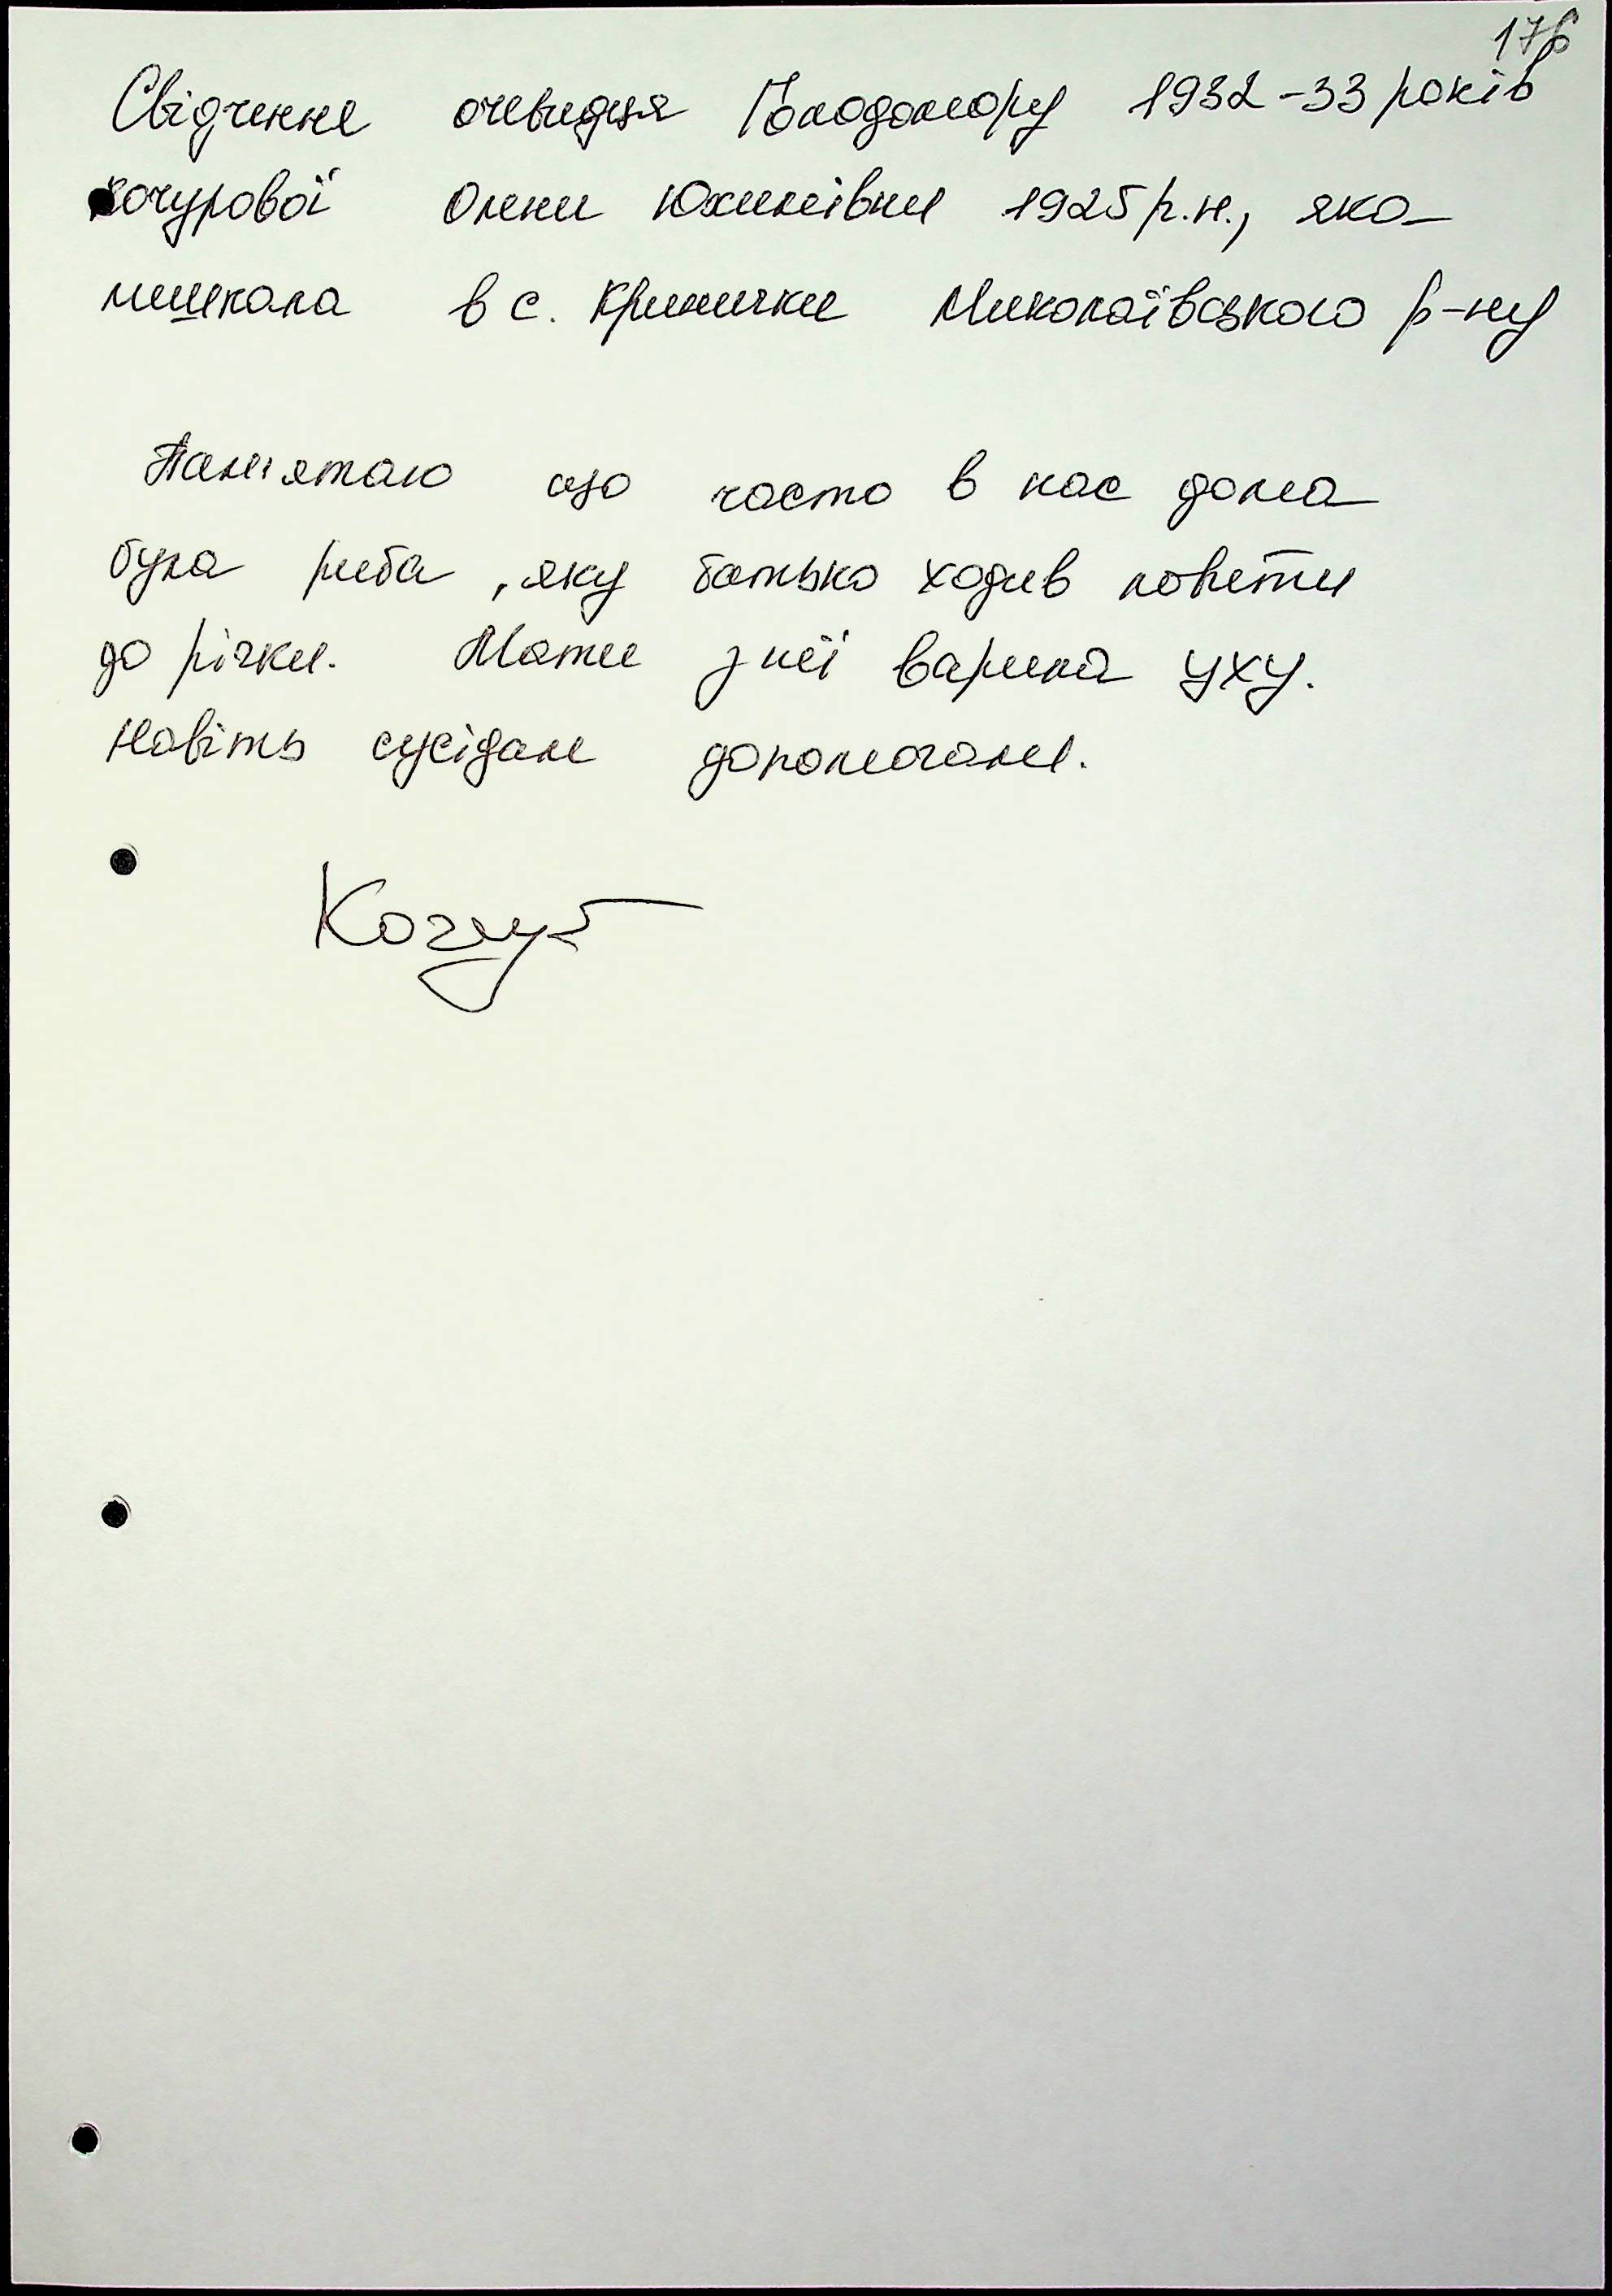 176
Свідчення очевидця Голодомору 1932-33 років
Кочурової Олени Юхимівни 1925 р.н., яка
мешкала в с. Кринички Миколаївського р-ну
Пам'ятаю що часто в нас дома
була риба, яку батько ходив ловити
до річки. Мати з неї варила уху.
Навіть сусідам допомагали.